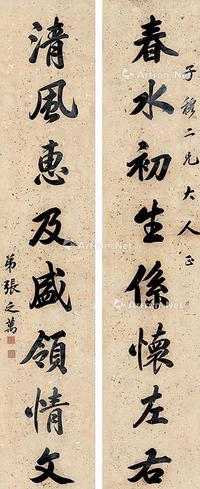 子穆二兄大人正
春水初生係懷左右
清風惠及盛領情文
弟張之萬
Artron.Net
Artron.Net
Artron.Net
Artron.Net